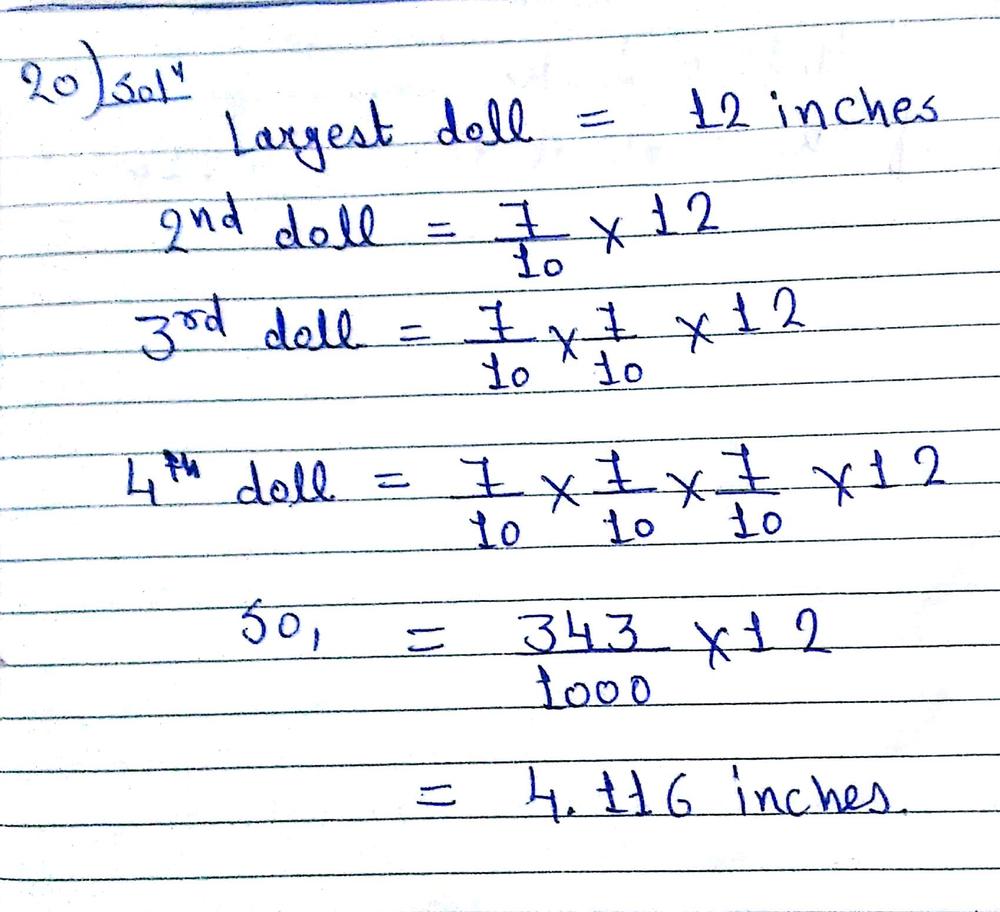 20) Solⁿ
Largest doll = 12 inches
2nd doll = 7/10 × 12
3rd doll = 7/10 × 7/10 × 12
4th doll = 7/10 × 7/10 × 7/10 × 12
So, = 343/1000 × 12
= 4.116 inches.